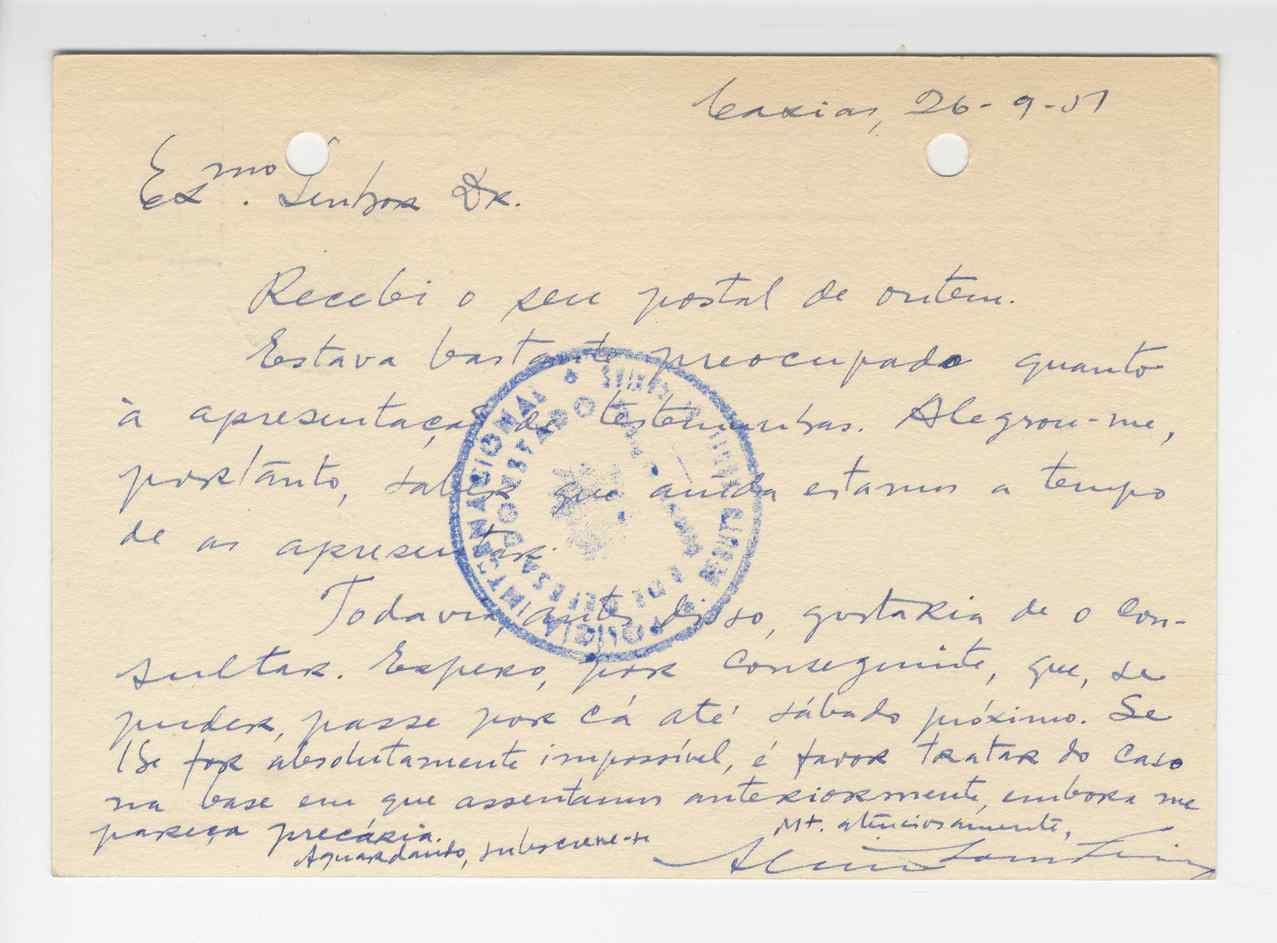 Caxias, 26-9-51
Exmo. Senhor Dr.
Recebi o seu postal de ontem.
Estava bastante preocupado quanto
à apresentação de testemunhas. Alegrou-me,
portanto, saber que ainda estamos a tempo
de as apresentar.
Todavia, antes disso, gostaria de o con-
sultar. Espero, por conseguinte, que, se
puder, passe por cá até sábado próximo. Se
(Se for absolutamente impossível, é favor tratar do caso
na base em que assentamos anteriormente, embora me
pareça precária.
Aguardando, subscreve-se
Mt. atenciosamente,
POLICIA INTERNACIONAL
E DE DEFESA DO ESTADO